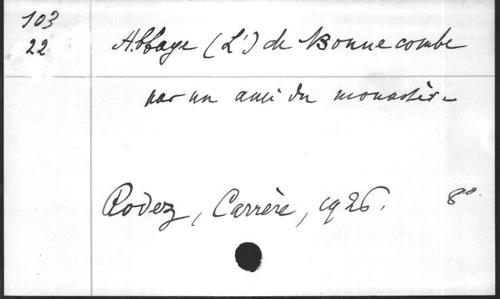 103
22
Abbaye (L') de Bonnecombe
par un ami du monastère
Rodez, Carrère, 1926. 8º